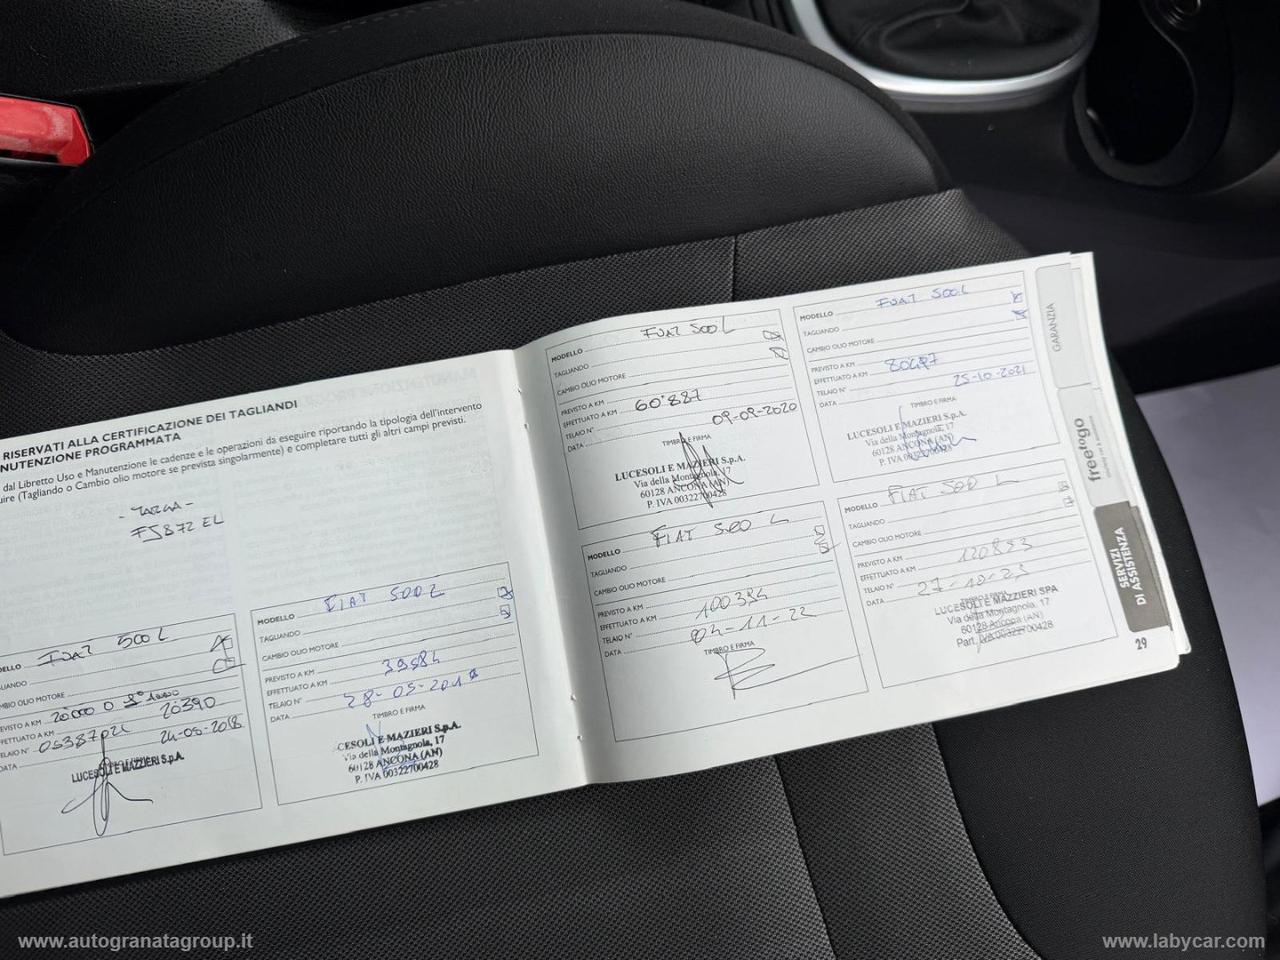 RISERVATI ALLA CERTIFICAZIONE DEI TAGLIANDI
NUTENZIONE PROGRAMMATA
dal Libretto Uso e Manutenzione le cadenze e le operazioni da eseguire riportando la tipologia dell'intervento
uire (Tagliando o Cambio olio motore se prevista singolarmente) e completare tutti gli altri campi previsti.
- TARGA -
FJ872EL
DELLO FIAT 500L
LIANDO
MBIO OLIO MOTORE
EVISTO A KM 20000 O
FFETTUATO A KM 20390
ELAIO N°
DATA 24-05-2018
LUCESOLI E MAZZIERI S.p.A.
MODELLO FIAT 500L
TAGLIANDO
CAMBIO OLIO MOTORE
PREVISTO A KM
EFFETTUATO A KM 39584
TELAIO N°
DATA 28-05-2019
TIMBRO E FIRMA
CESOLI E MAZZIERI S.p.A.
Via della Montagnola, 17
60128 ANCONA (AN)
P. IVA 00322700428
MODELLO FIAT 500L
TAGLIANDO
CAMBIO OLIO MOTORE
PREVISTO A KM
EFFETTUATO A KM 60'887
TELAIO N°
DATA 09-09-2020
TIMBRO E FIRMA
LUCESOLI E MAZZIERI S.p.A.
Via della Montagnola, 17
60128 ANCONA (AN)
P. IVA 00322700428
MODELLO FIAT 500L
TAGLIANDO
CAMBIO OLIO MOTORE
PREVISTO A KM
EFFETTUATO A KM
TELAIO N°
DATA 25-10-2021
TIMBRO E FIRMA
LUCESOLI E MAZZIERI S.p.A.
Via della Montagnola, 17
60128 ANCONA (AN)
P. IVA 00322700428
MODELLO FIAT 500L
TAGLIANDO
CAMBIO OLIO MOTORE
PREVISTO A KM
EFFETTUATO A KM 100394
TELAIO N°
DATA 04-11-22
TIMBRO E FIRMA
MODELLO FIAT 500L
TAGLIANDO
CAMBIO OLIO MOTORE
PREVISTO A KM
EFFETTUATO A KM 120853
TELAIO N°
DATA 27-10-23
TIMBRO E FIRMA
LUCESOLI E MAZZIERI SPA
Via della Montagnola, 17
60128 Ancona (AN)
Part. IVA 00322700428
GARANZIA
freetogo
SERVIZI
DI ASSISTENZA
29
www.autogranatagroup.it
www.labycar.com